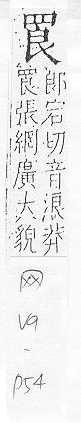 䍚
郎宕切音浪莽
䍚張網廣大貌
网
V9
-
P54